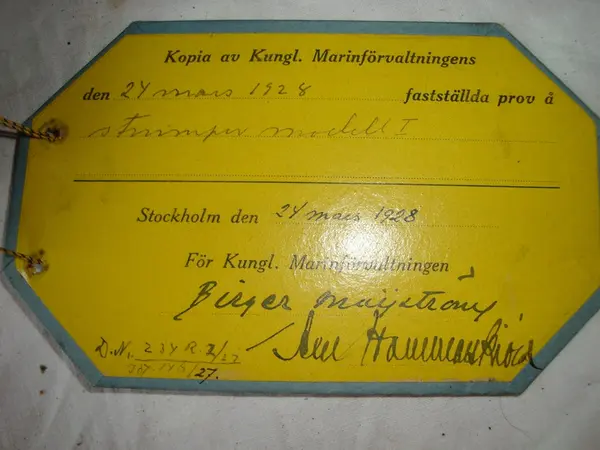 Kopia av Kungl. Marinförvaltningens
den 24 mars 1928 fastställda prov å
strumpor modell I
Stockholm den 24 mars 1928
För Kungl. Marinförvaltningen
Birger Maijström
Hammarskiöld
D.N.
27.